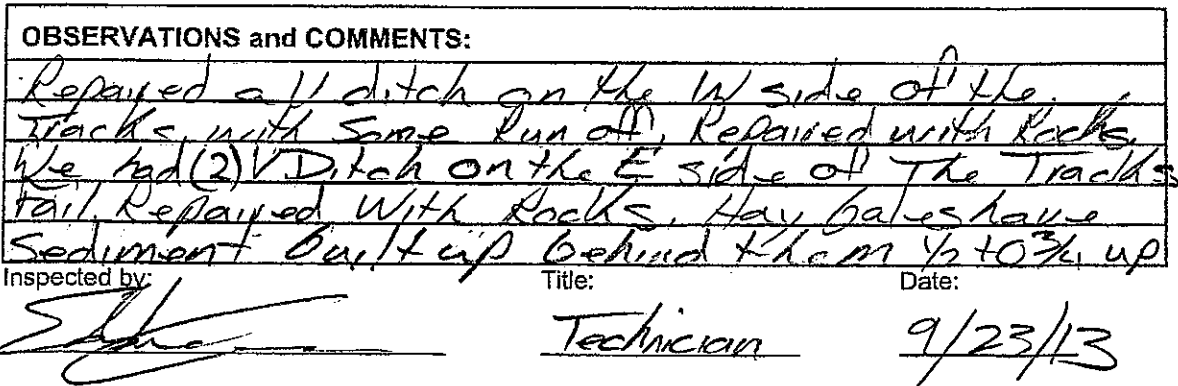 OBSERVATIONS and COMMENTS:
Repaired a V ditch on the W side of the
Tracks, with Some Run off, Repaired with Rocks,
We had (2) V Ditch on the E side of The Tracks
fail, Repaired With Rocks. Hay bales have
Sediment built up behind them 1/2 to 3/4 up
Inspected by: Title: Date:
Technician 9/23/13